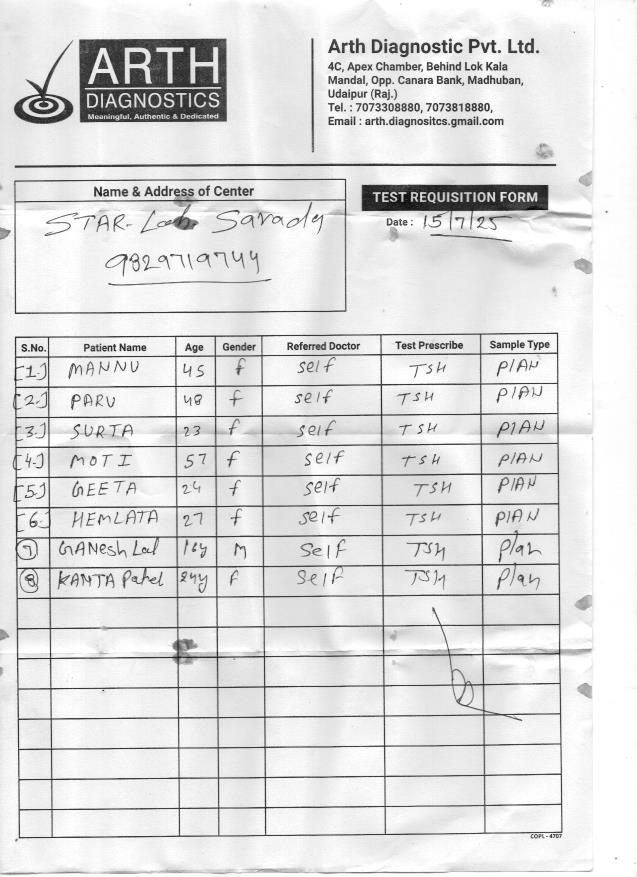 ARTH
DIAGNOSTICS
Meaningful, Authentic & Dedicated
Arth Diagnostic Pvt. Ltd.
4C, Apex Chamber, Behind Lok Kala
Mandal, Opp. Canara Bank, Madhuban,
Udaipur (Raj.)
Tel. : 7073308880, 7073818880,
Email : arth.diagnositcs.gmail.com
Name & Address of Center
STAR-Lab Sarady
9829719744
TEST REQUISITION FORM
Date : 15/7/25
S.No. Patient Name Age Gender Referred Doctor Test Prescribe Sample Type
[1.] MANNU 45 f self TSH PIAN
[2.] PARU 48 f self TSH PIAN
[3.] SURTA 23 f self TSH PIAN
[4.] MOTI 57 f self TSH PIAN
[5.] GEETA 24 f self TSH PIAN
[6.] HEMLATA 27 f self TSH PIAN
7 GANesh Lal 16y M Self TSH Plan
8 KANTA Patel 24y F Self TSH Plan
COPL - 4707